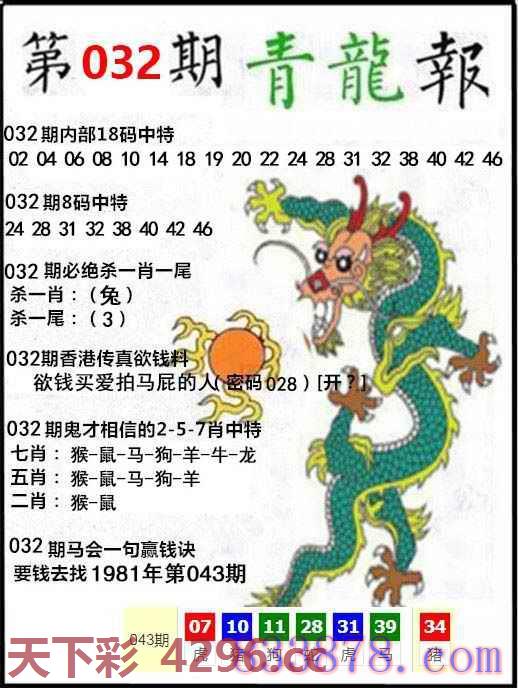 第032期青龍報
032期内部18码中特
02 04 06 08 10 14 18 19 20 22 24 28 31 32 38 40 42 46
032期8码中特
24 28 31 32 38 40 42 46
032 期必绝杀一肖一尾
杀一肖：（兔）
杀一尾：（3）
032期香港传真欲钱料
欲钱买爱拍马屁的人（密码028）[开？]
032期鬼才相信的2-5-7肖中特
七肖：猴-鼠-马-狗-羊-牛-龙
五肖：猴-鼠-马-狗-羊
二肖：猴-鼠
032期马会一句赢钱诀
要钱去找1981年第043期
043期 07 10 11 28 31 39 34
虎 猪 狗 蛇 虎 马 猪
天下彩 4296.cc